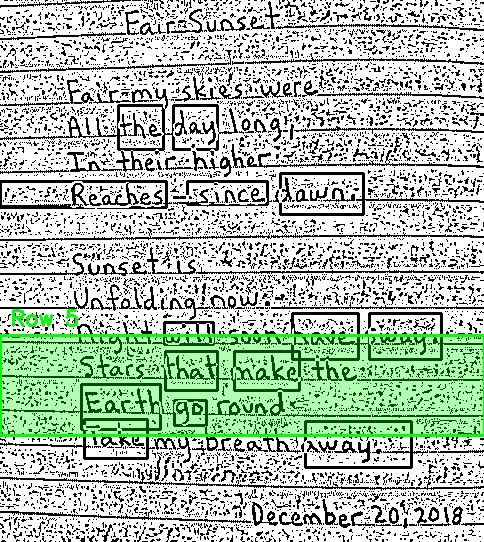 Fair Sunset
Fair my skies were
All the day long,
In their higher
Reaches – since dawn.
Sunset is
Unfolding now.
Night will soon have sway.
Row 5
Stars that make the
Earth go round
Take my breath away.
December 20, 2018